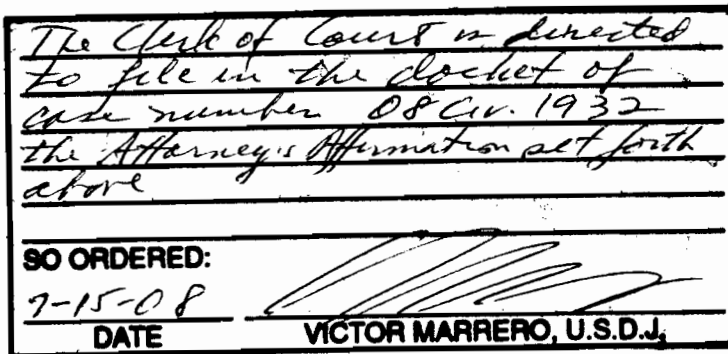 The Clerk of Court is directed
to file in the docket of
case number 08 Civ. 1932
the Attorney's Affirmation set forth
above
SO ORDERED:
7-15-08
DATE VICTOR MARRERO, U.S.D.J.